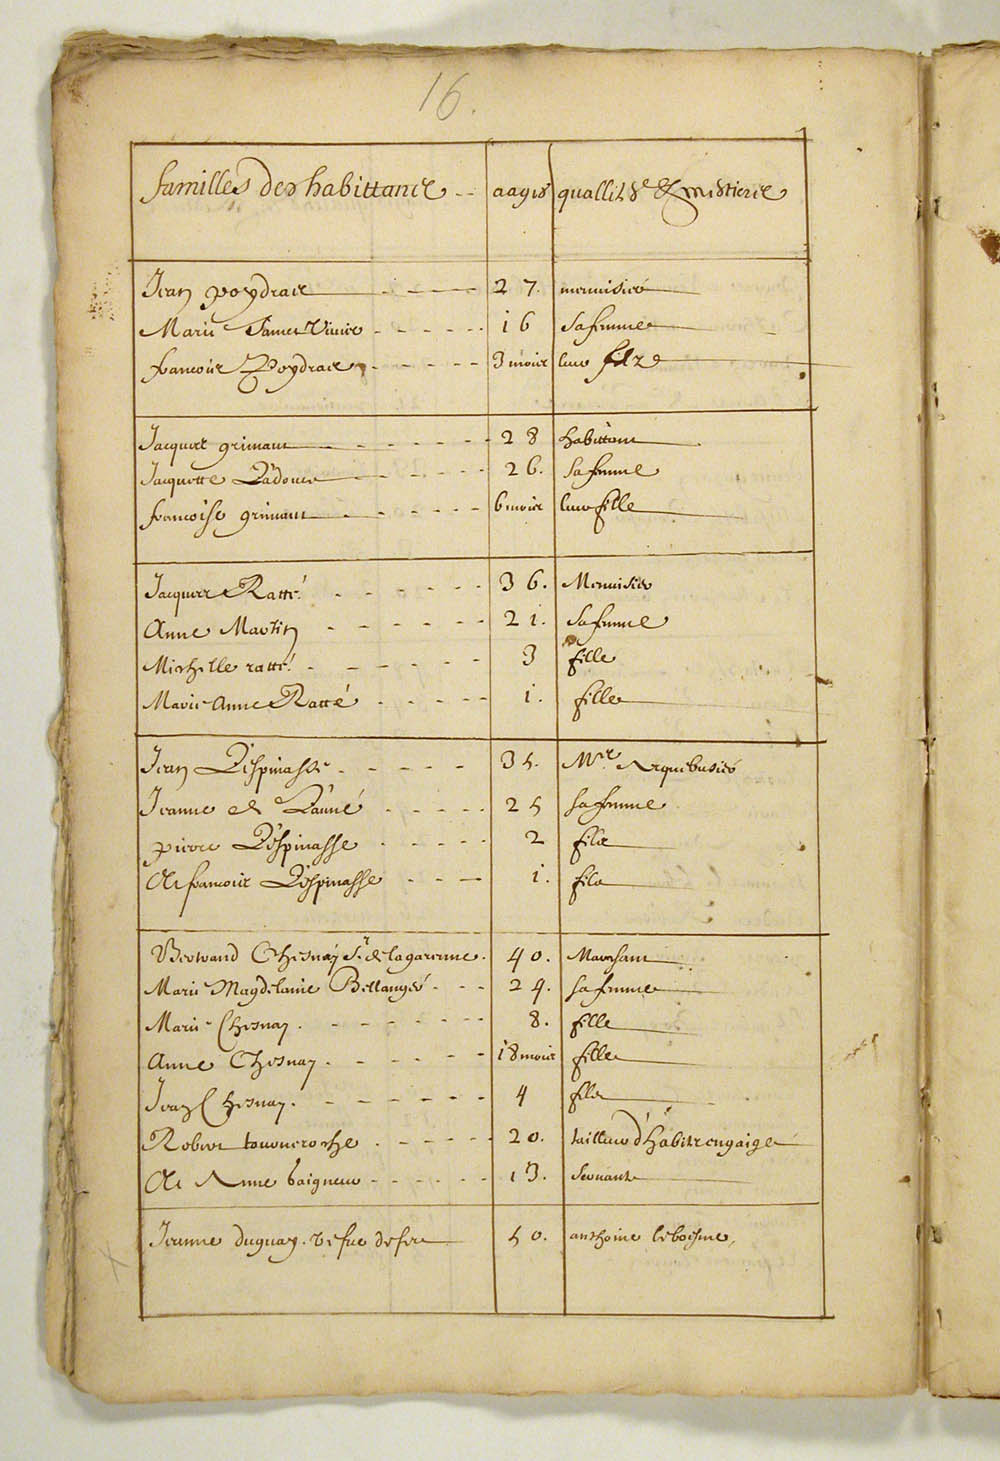 16.
familles des habittans -- aages quallités & mestiers
Jean poydras 27. menuisier
Marie Sainct Vivier 16 Sa femme
francois Poydras 3 mois leur filz
Jacques grimaut 28 habittant
Jacquette Ladouce 26. Sa femme
francoise grimaut 6 mois leur fille
Jacques Ratté. 36. Menuisier
Anne Martin 21. Sa femme
Michelle ratté. 3 fille
Marie Anne Ratté 1. fille
Jean Léspinasse 35. Mre. Arquebusier
Jeanne de Launé 25 sa femme
pierre Léspinasse 2 filz
Et francois Léspinasse 1. filz
Bertrand Chesnay Sr. de lagarenne. 40. Marchant
Marie Magdelaine Bellanger 24. sa femme
Marie Chesnay. 8. fille
Anne Chesnay. 18 mois fille
Jean Chesnay. 4 filz
Robert tourneroche 20. tailleur d'habitz engaigé
Et Anne baigneur 13. Servante
Jeanne duguay. vefue defeu 50. anthoine leboesme,